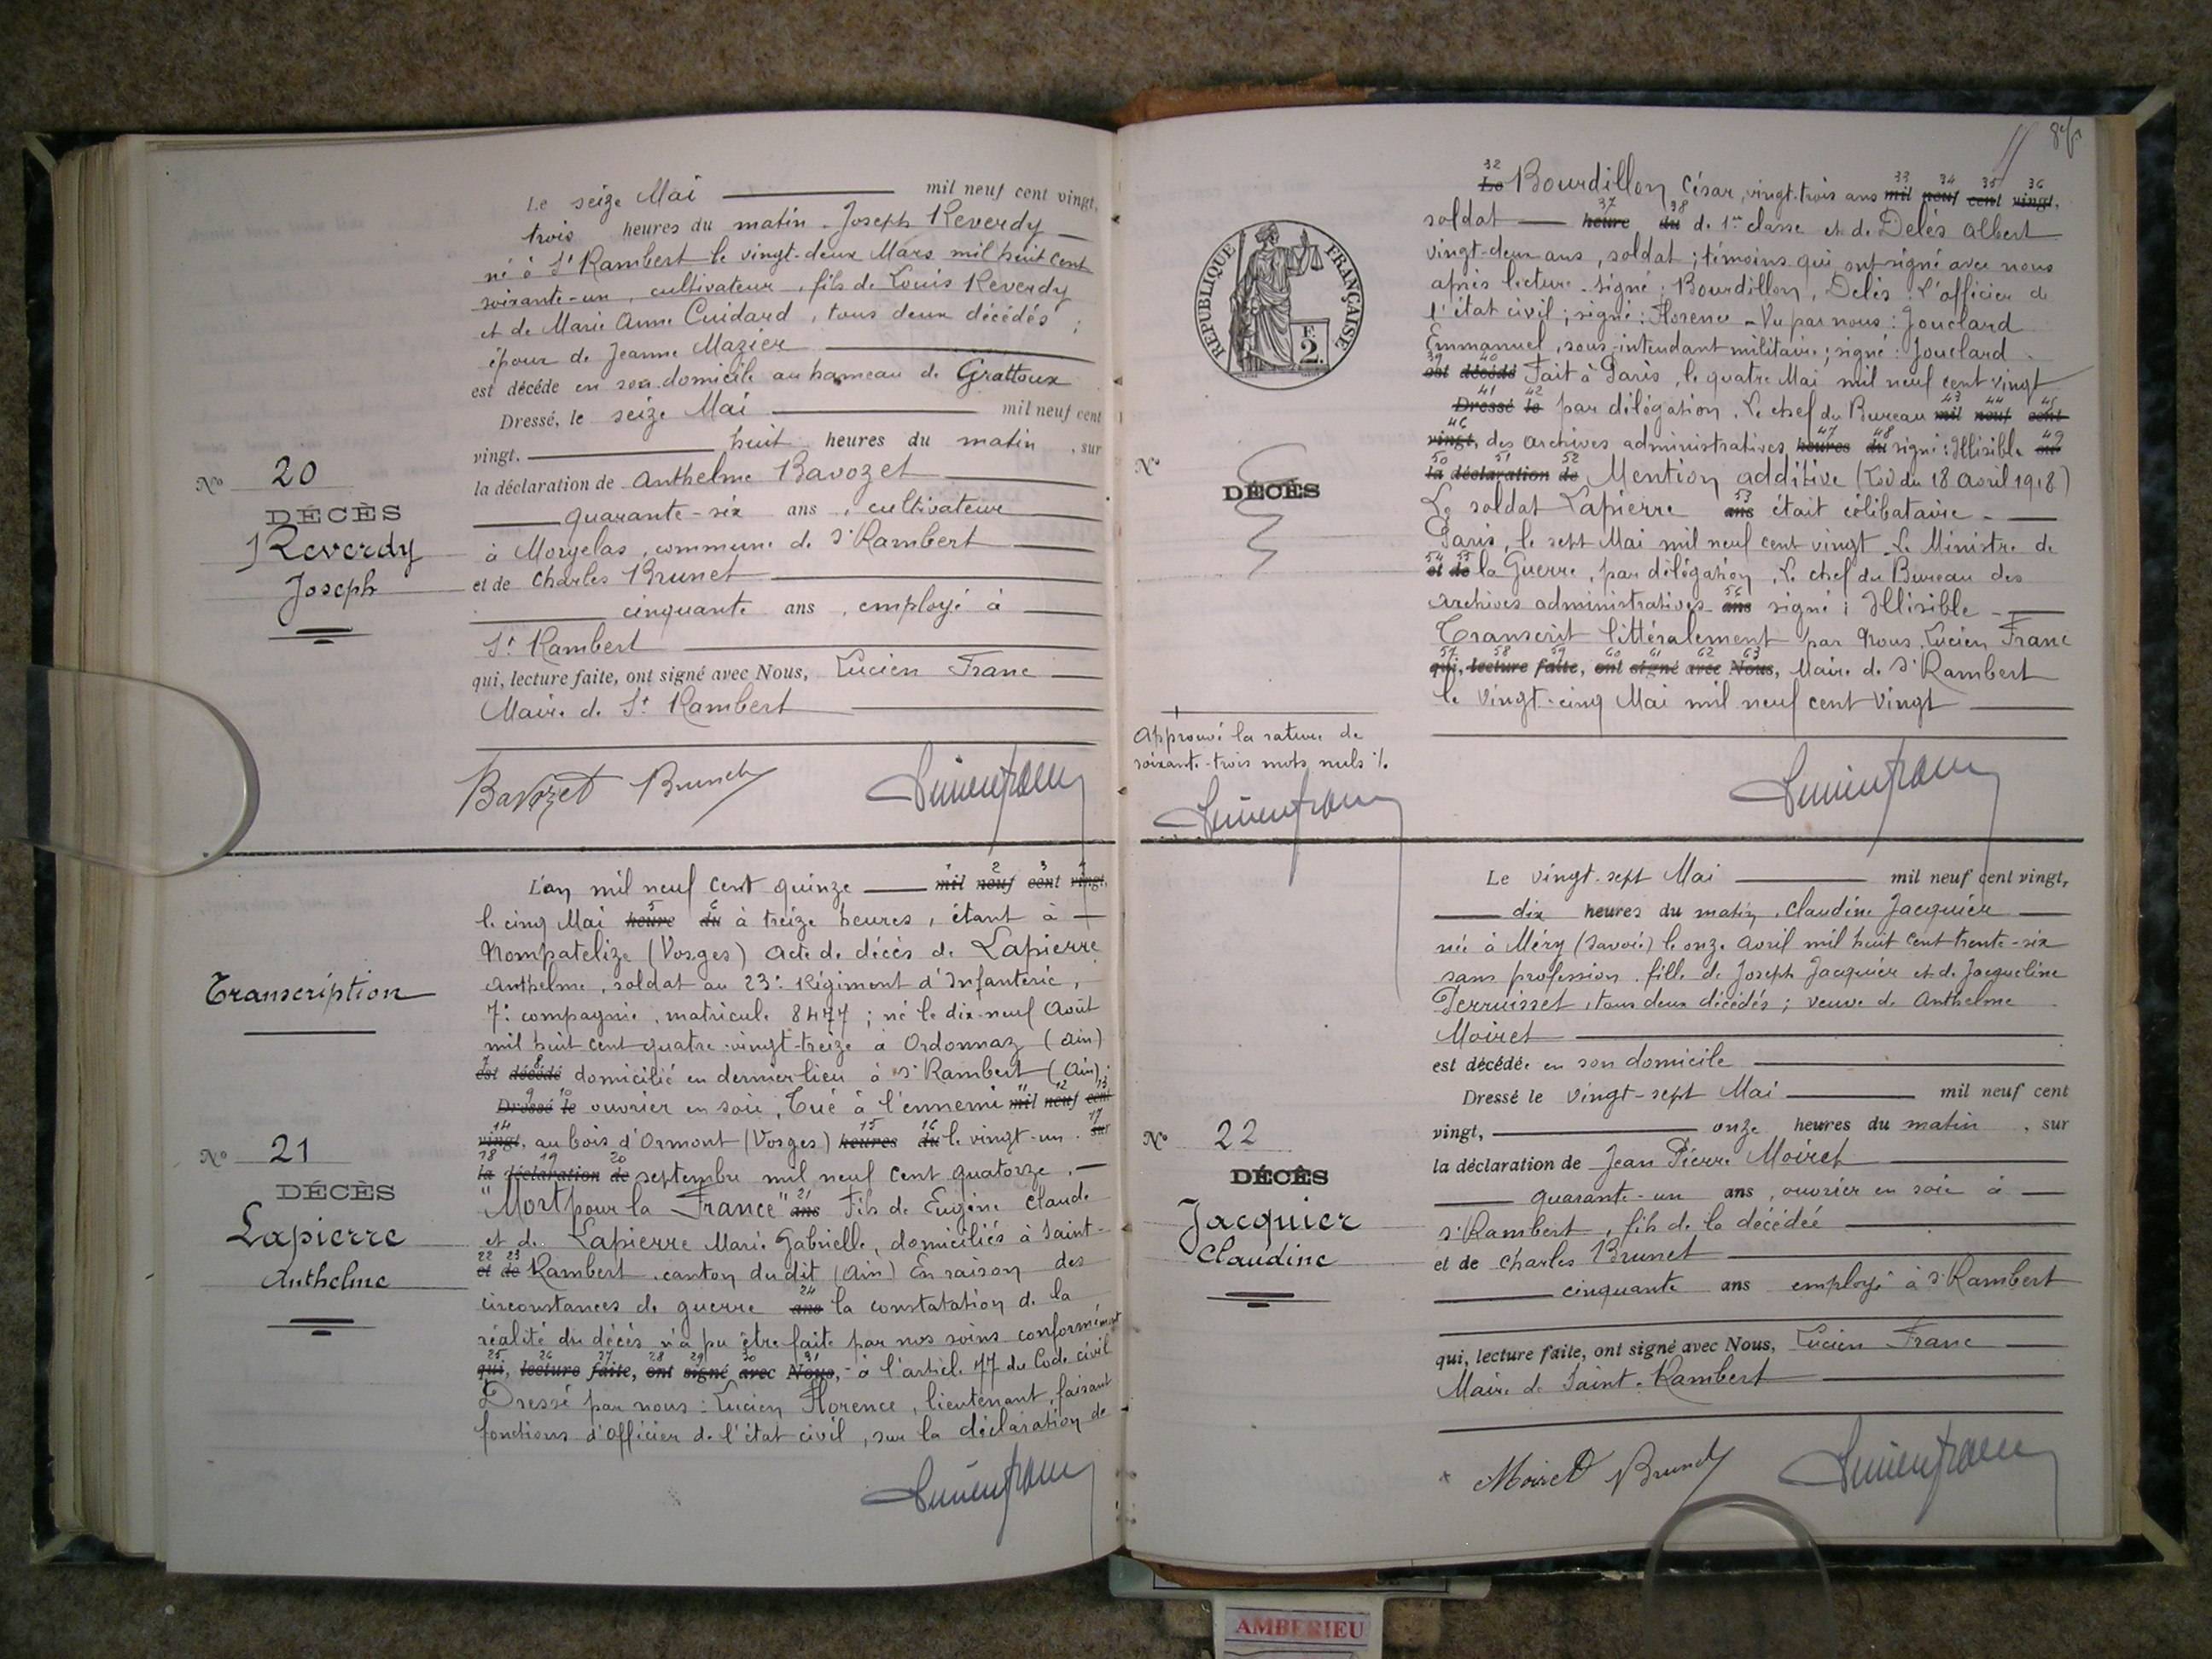 Le seize Mai mil neuf cent vingt,
trois heures du matin. Joseph Reverdy
né à St Rambert le vingt-deux Mars mil huit cent
soixante-un, cultivateur, fils de Louis Reverdy
et de Marie Anne Cuidard, tous deux décédés ;
époux de Jeanne Mazier
est décédé en son domicile au hameau de Grattoux
Dressé, le seize Mai mil neuf cent
vingt, huit heures du matin, sur
la déclaration de Anthelme Bavozet
quarante-six ans, cultivateur
à Morgelas, commune de St Rambert
et de Charles Brunet
cinquante ans, employé à
St Rambert
qui, lecture faite, ont signé avec Nous, Lucien Franc
Maire de St Rambert
No 20
DÉCÈS
Reverdy
Joseph
Bavozet Brunet Lucien Franc
Transcription
No 21
DÉCÈS
Lapierre
Anthelme
L'an mil neuf cent quinze mil neuf cent vingt,
le cinq Mai heure du à treize heures, étant à
Nompatelize (Vosges) Acte de décès de Lapierre
Anthelme, soldat au 23e Régiment d'Infanterie,
7e compagnie, matricule 8477 ; né le dix-neuf Août
mil huit cent quatre-vingt-treize à Ordonnaz (Ain)
est décédé domicilié en dernier lieu à St Rambert (Ain);
Dressé le ouvrier en soie, Tué à l'ennemi mil neuf cent
vingt, au bois d'Ormont (Vosges) heures du le vingt-un sur
la déclaration de septembre mil neuf cent quatorze,
"Mort pour la France" ans Fils de Eugène Claude
et de Lapierre Marie Gabrielle, domiciliés à Saint-
et de Rambert, canton du dit (Ain) En raison des
circonstances de guerre ans la constatation de la
réalité du décès n'a pu être faite par nos soins conformément
qui, lecture faite, ont signé avec Nous, à l'article 77 du Code civil
Dressé par nous : Lucien Florence, lieutenant, faisant
fonctions d'officier de l'état civil, sur la déclaration de
Lucien Franc
RÉPUBLIQUE FRANÇAISE
F.
2.
No
DÉCÈS
Le Bourdillon César, vingt-trois ans mil neuf cent vingt,
soldat heure du de 1re classe et de Delès Albert
vingt-deux ans, soldat ; témoins qui ont signé avec nous
après lecture. signé : Bourdillon, Delès : L'officier de
l'état civil ; signé : Florence - Vu par nous : Jouclard
Emmanuel, sous-intendant militaire ; signé : Jouclard
est décédé Fait à Paris, le quatre Mai mil neuf cent vingt
Dressé le par délégation, Le chef du Bureau mil neuf cent
vingt, des archives administratives heures du signé : Illisible sur
la déclaration de Mention additive (Loi du 18 Avril 1918)
Le soldat Lapierre ans était célibataire
Paris, le sept Mai mil neuf cent vingt Le Ministre de
et de la Guerre, par délégation, Le chef du Bureau des
archives administratives ans signé : Illisible
Transcrit littéralement par Nous, Lucien Franc
qui, lecture faite, ont signé avec Nous, Maire de St Rambert
le Vingt-cinq Mai mil neuf cent vingt
Approuvé la rature de
soixante-trois mots nuls
Lucien Franc
Lucien Franc
No 22
DÉCÈS
Jacquier
Claudine
Le vingt-sept Mai mil neuf cent vingt,
dix heures du matin, Claudine Jacquier
née à Méry (Savoie) le onze Avril mil huit cent trente-six
sans profession, fille de Joseph Jacquier et de Jacqueline
Perruisset, tous deux décédés ; veuve de Anthelme
Moiret
est décédée en son domicile
Dressé le vingt-sept Mai mil neuf cent
vingt, onze heures du matin, sur
la déclaration de Jean Pierre Moiret
quarante-un ans, ouvrier en soie à
St Rambert, fils de la décédée
et de Charles Brunet
cinquante ans employé à St Rambert
qui, lecture faite, ont signé avec Nous, Lucien Franc
Maire de Saint-Rambert
Moiret Brunet Lucien Franc
AMBERIEU